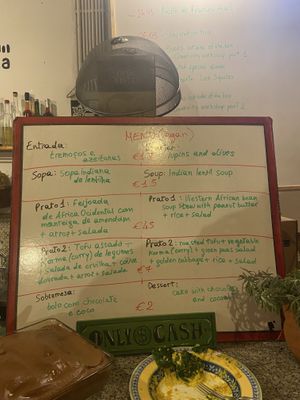 MENU (vegan)
Entrada: tremoços e azeitonas
€1
lupins and olives
Sopa: Sopa indiana de lentilha
Soup: Indian lentil soup
€1.5
Prato 1: Feijoada de África Ocidental com manteiga de amendoim + arroz + salada
Prato 1: Western African bean soup stew with peanut butter + rice + salad
€45
Prato 2: Tofu assado + korma (curry) de legumes + salada de ervilha + couve dourada + arroz + salada
Prato 2: roasted tofu + vegetable korma (curry) + green peas salad + golden cabbage + rice + salad
€7
Sobremesa: bolo com chocolate e coco
Dessert: cake with chocolate and coconut
€2
ONLY CASH